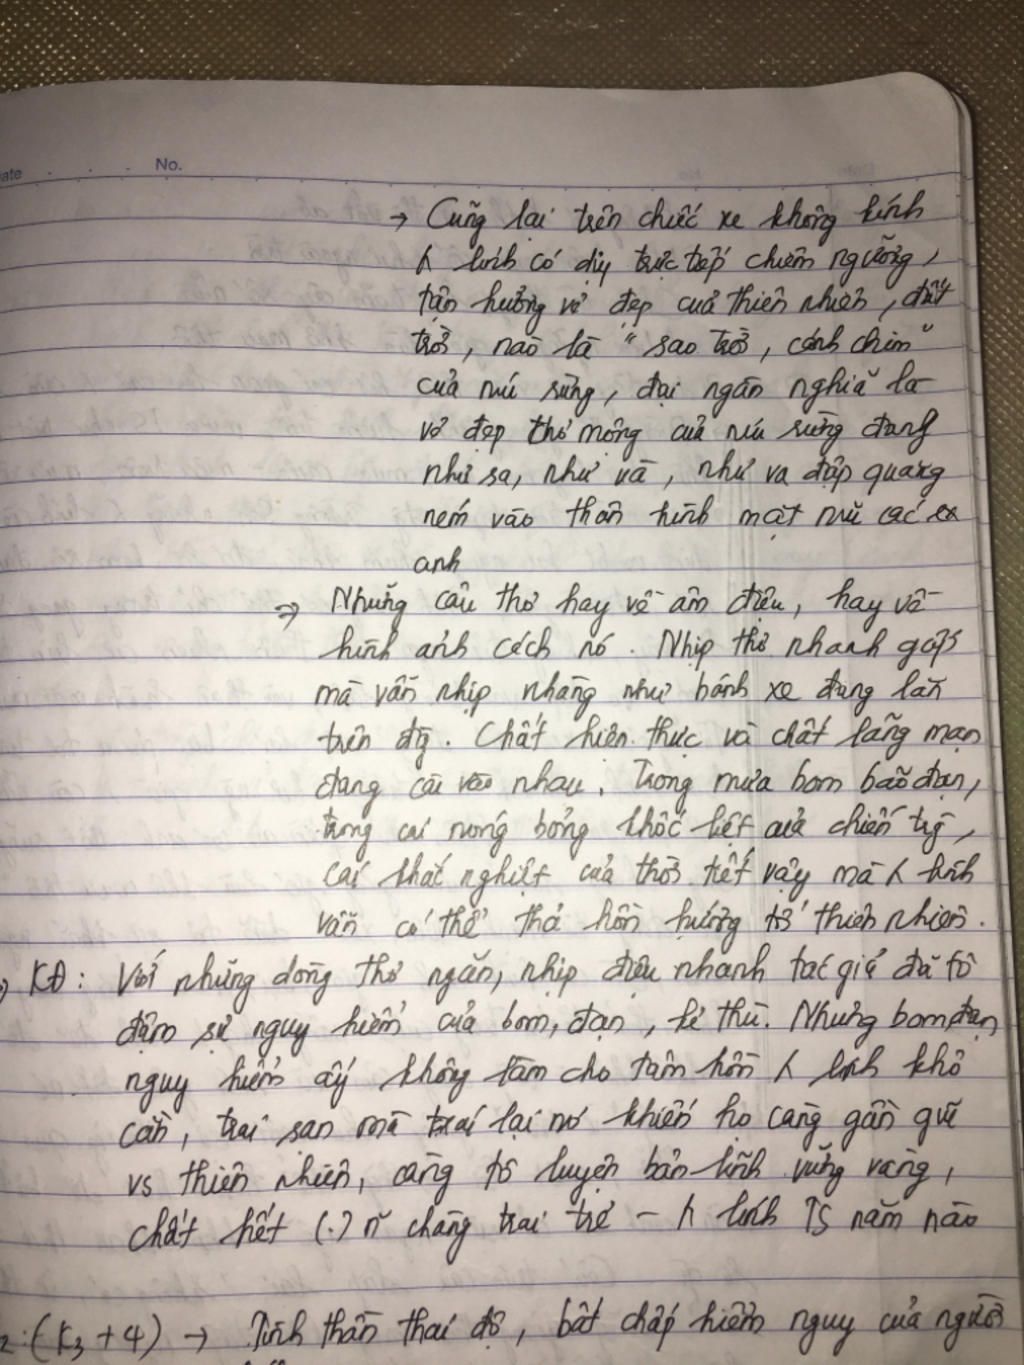 ate No.
→ Cũng lại trên chiếc xe không kính
lính có dịp trực tiếp chiêm ngưỡng,
tận hưởng vẻ đẹp của thiên nhiên, đất
trời, nào là "sao trời, cánh chim"
của núi rừng, đại ngàn nghĩa là
vẻ đẹp thơ mộng của núi rừng đang
như sa, như và, như va đập quang
ném vào thân hình mặt mũi các
anh
⇒ Những câu thơ hay về âm điệu, hay về
hình ảnh cách nó. Nhịp thơ nhanh gấp
mà vẫn nhịp nhàng như bánh xe đang lăn
trên đg. Chất hiện thực và chất lãng mạn
đang cài vào nhau. Trong mưa bom bão đạn,
trong cái nóng bỏng khốc liệt của chiến trg,
cái khắc nghiệt của thời tiết vậy mà lính
vẫn có thể thả hồn hướng tới thiên nhiên.
KĐ: Với những dòng thơ ngắn, nhịp điệu nhanh tác giả đã tô
đậm sự nguy hiểm của bom, đạn, kẻ thù. Nhưng bom đạn
nguy hiểm ấy không làm cho tâm hồn lính khô
cằn, trai sạn mà trái lại nó khiến họ càng gần gũi
vs thiên nhiên, càng tô luyện bản lĩnh vững vàng,
chất hết (.) n~ chàng trai trẻ - lính TS năm nào
2:(K3 + 4) → Tinh thần thái độ, bất chấp hiểm nguy của người